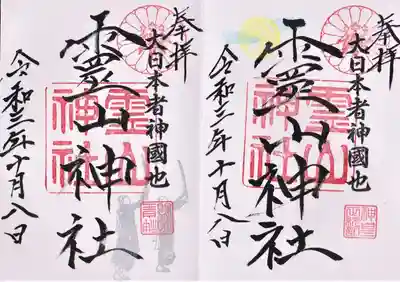 奉拝
大日本者神國也
靈山神社
霊山神社
令和三年十月八日
奉拝
大日本者神國也
靈山神社
霊山神社
令和三年十月八日